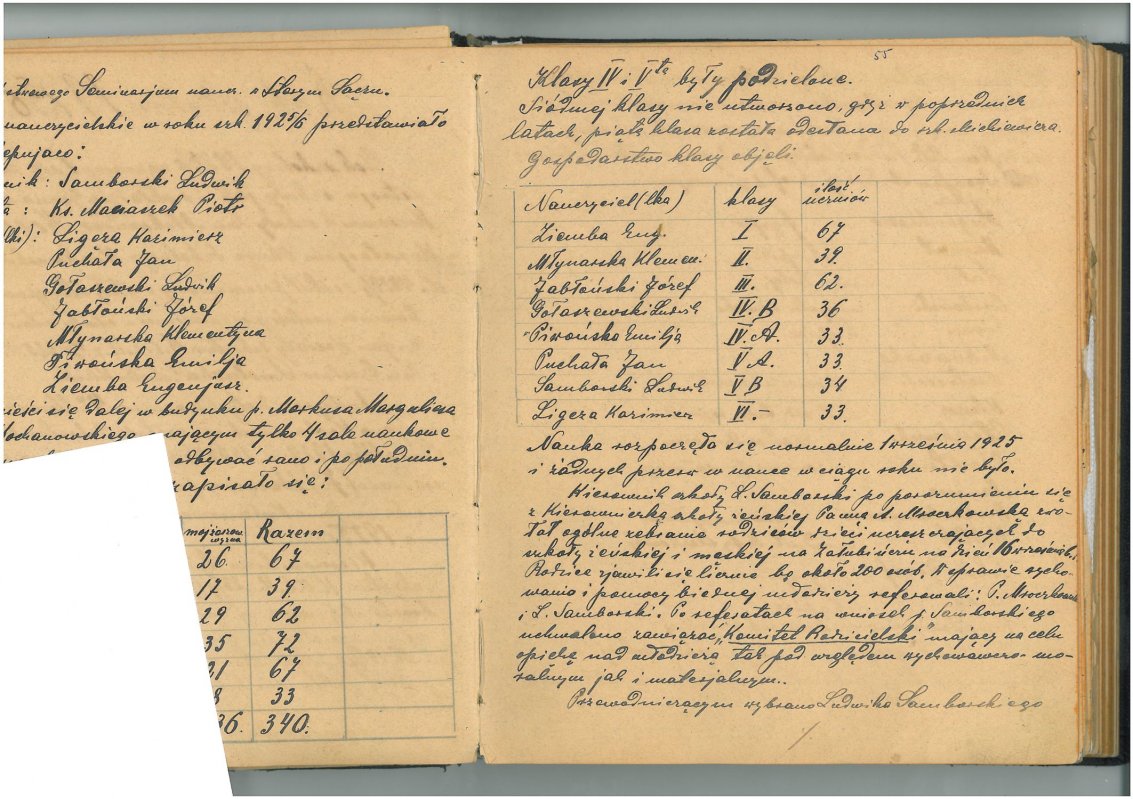 Seminarjum naucz. w Starym Sączu.
nauczycielskie w roku szk. 1925/6 przedstawiało
ępująco:
nik: Samborski Ludwik
ta: Ks. Maciaszek Piotr
(lki): Ligęza Kazimierz
Puchała Jan
Gołaszewski Ludwik
Jabłoński Józef
Młynarska Klementyna
Piwońska Emilja
Ziemba Eugenjusz.
ieści się dalej w budynku p. Markusa Margulies
Kochanowskiego mającym tylko 4 sale naukowe
odbywać rano i po południu.
zapisało się:
mojżeszow. wyzna Razem
26 67
17 39
29 62
35 72
21 67
8 33
36. 340.
55
Klasy IV i Vta były podzielone.
Siódmej klasy nie utworzono, gdyż w poprzednich
latach, piąta klasa została odesłana do szk. Mickiewicza.
Gospodarstwo klasy objęli.
Nauczyciel(lka) klasy ilość uczniów
Ziemba Eug. I 67
Młynarska Klemen. II. 39.
Jabłoński Józef III. 62.
Gołaszewski Ludwik IV.B 36
Piwońska Emilja IV.A. 33.
Puchała Jan V A. 33.
Samborski Ludwik V B 34
Ligęza Kazimierz VI.- 33.
Nauka rozpoczęła się normalnie 1 września 1925
i żadnych przerw w nauce w ciągu roku nie było.
Kierownik szkoły L. Samborski po porozumieniu się
z Kierowniczką szkoły żeńskiej Panną A. Mroczkowską zwo-
łał ogólne zebranie rodziców dzieci uczęszczających do
szkoły żeńskiej i męskiej na Załubińczu na dzień 16 września b.
Rodzice zjawili się licznie bo około 200 osób. W sprawie wycho-
wania i pomocy biednej młodzieży referowali: P. Mroczkowska
i L. Samborski. Po referatach na wniosek p. Samborskiego
uchwalono zawiązać „Komitet Rodzicielski" mający na celu
opiekę nad młodzieżą tak pod względem wychowawczo-mo-
ralnym jak i materjalnym..
Przewodniczącym wybrano Ludwika Samborskiego